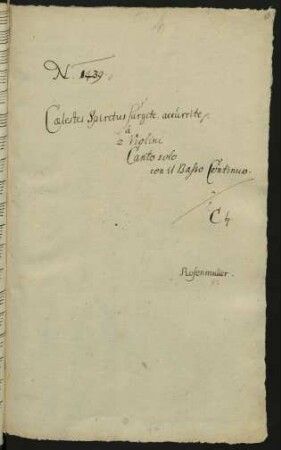 N. 1439.
Cælestes Spiritus surgite, accurrite,
à
2 Violini
Canto solo
con il Basso Continuo.
C ♮
Rosenmuller.